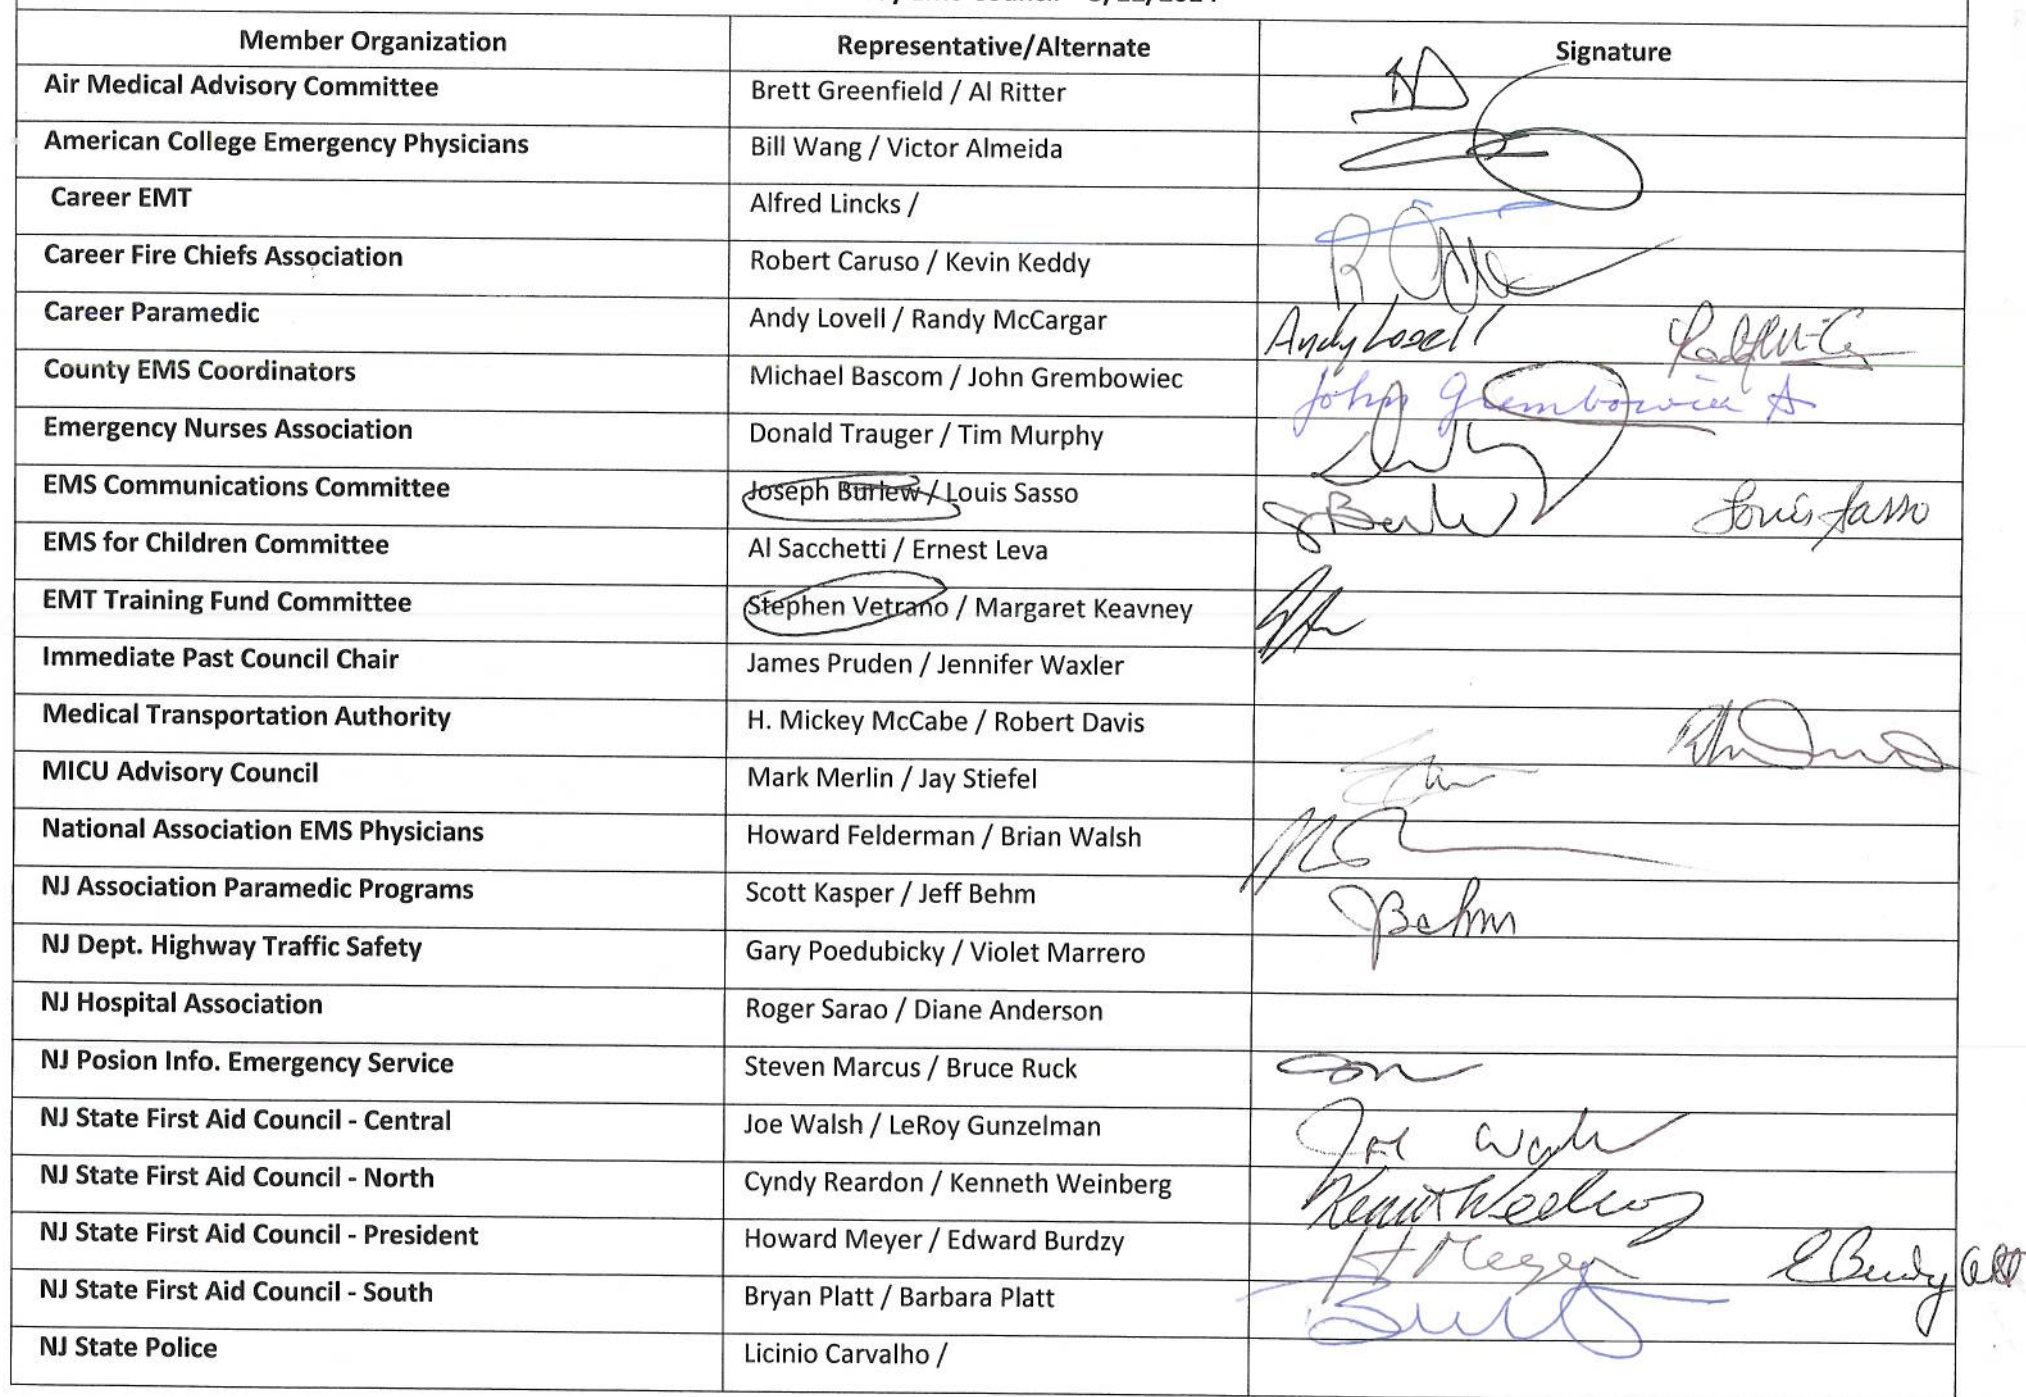 Member Organization Representative/Alternate Signature
Air Medical Advisory Committee Brett Greenfield / Al Ritter
American College Emergency Physicians Bill Wang / Victor Almeida
Career EMT Alfred Lincks /
Career Fire Chiefs Association Robert Caruso / Kevin Keddy
Career Paramedic Andy Lovell / Randy McCargar Andy Lovell
County EMS Coordinators Michael Bascom / John Grembowiec John Grembowiec
Emergency Nurses Association Donald Trauger / Tim Murphy
EMS Communications Committee Joseph Burlew / Louis Sasso Louis Sasso
EMS for Children Committee Al Sacchetti / Ernest Leva
EMT Training Fund Committee Stephen Vetrano / Margaret Keavney
Immediate Past Council Chair James Pruden / Jennifer Waxler
Medical Transportation Authority H. Mickey McCabe / Robert Davis
MICU Advisory Council Mark Merlin / Jay Stiefel
National Association EMS Physicians Howard Felderman / Brian Walsh
NJ Association Paramedic Programs Scott Kasper / Jeff Behm JBehm
NJ Dept. Highway Traffic Safety Gary Poedubicky / Violet Marrero
NJ Hospital Association Roger Sarao / Diane Anderson
NJ Posion Info. Emergency Service Steven Marcus / Bruce Ruck
NJ State First Aid Council - Central Joe Walsh / LeRoy Gunzelman Joe Walsh
NJ State First Aid Council - North Cyndy Reardon / Kenneth Weinberg
NJ State First Aid Council - President Howard Meyer / Edward Burdzy H Meyer
NJ State First Aid Council - South Bryan Platt / Barbara Platt
NJ State Police Licinio Carvalho /